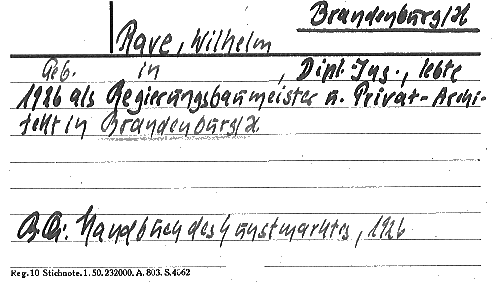 Brandenburg/H
Rave, Wilhelm
Geb. in , Dipl.-Ing., lebte
1926 als Regierungsbaumeister u. Privat-Archi-
tekt in Brandenburg/H
Handbuch des Kunstmarktes, 1926
Reg. 10 Stichnote. 1. 50. 232000. A. 803. S. 4062